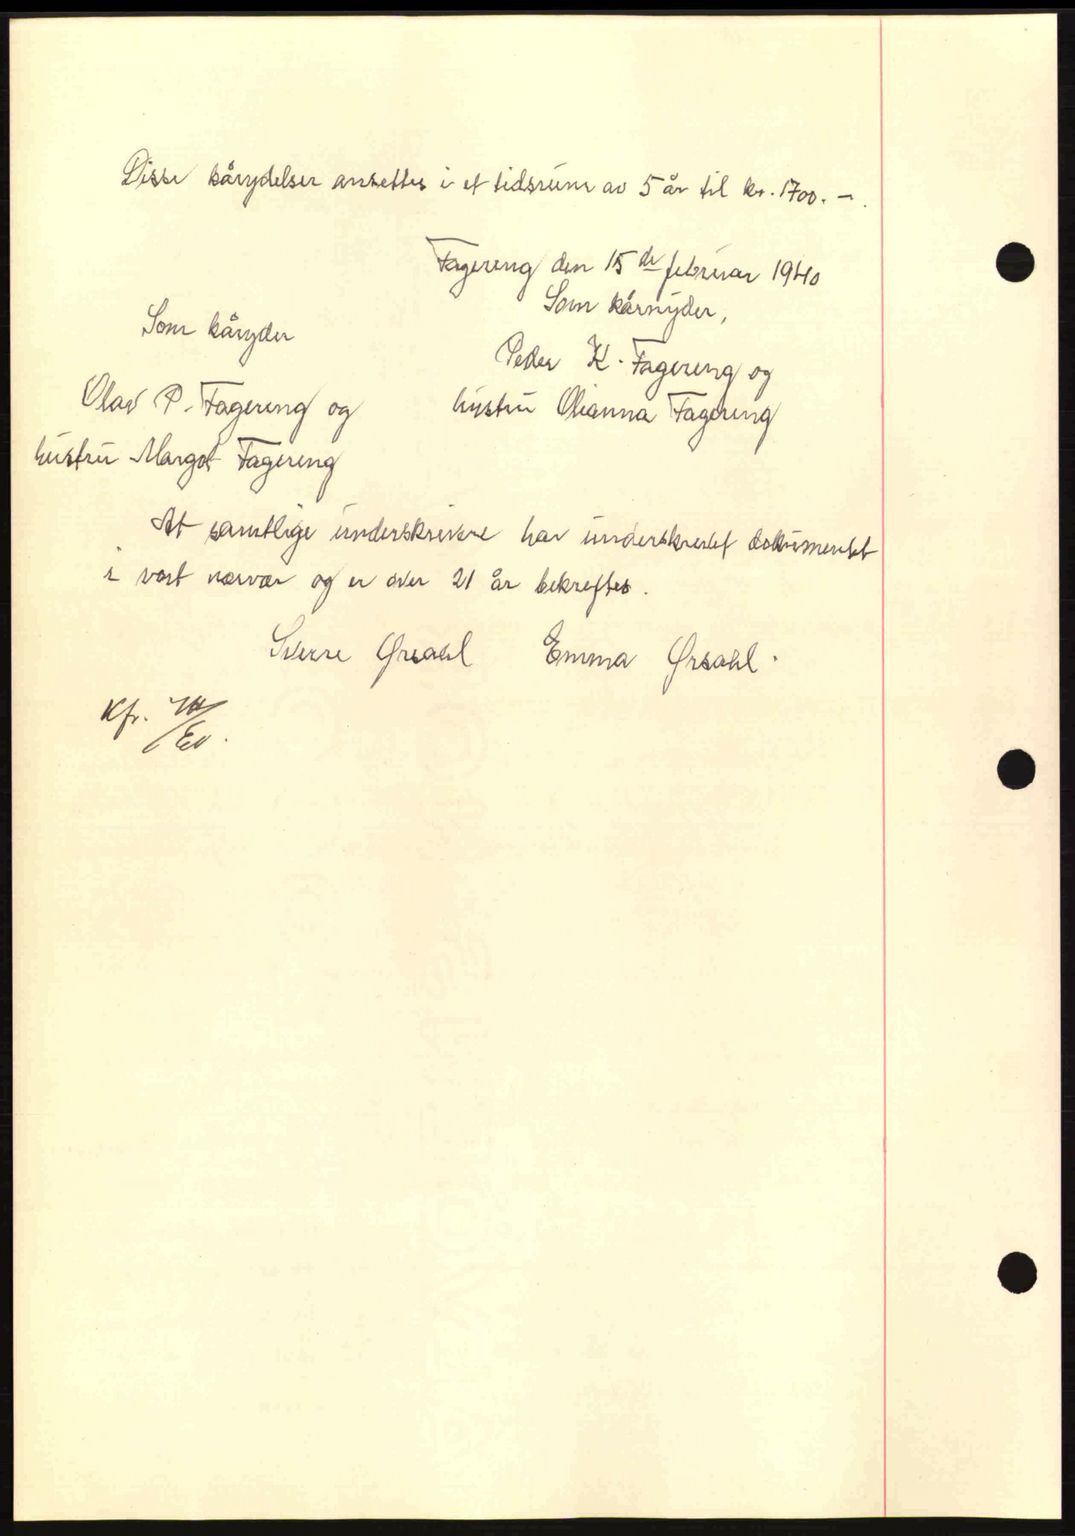 Disse kårydelser ansettes i et tidsrum av 5 år til kr. 1700. –.
Fagereng den 15 de februar 1940
Som kårnyder,
Peder K. Fagereng og
hustru Olianna Fagereng
Som kåryder
Olav P. Fagereng og
hustru Margot Fagereng
At samtlige underskrivere har underskrevet dokumentet
i vort nærvær og er over 21 år bekreftes.
Sverre Ørsahl Emma Ørsahl.
Kfr.